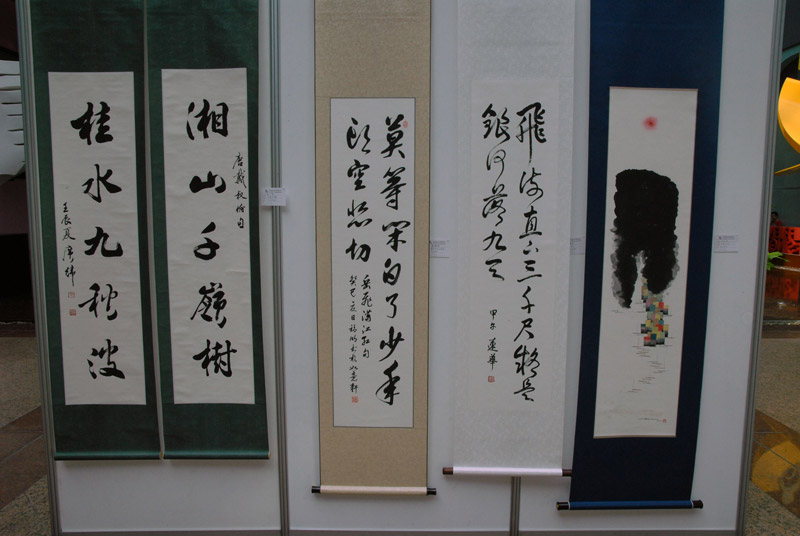 湘山千嶺樹
唐戴叔倫句
桂水九秋波
壬辰夏
莫等閒白了少年
頭空悲切
岳飛滿江紅句
飛流直下三千尺疑是
銀河落九天
甲午 蓮華